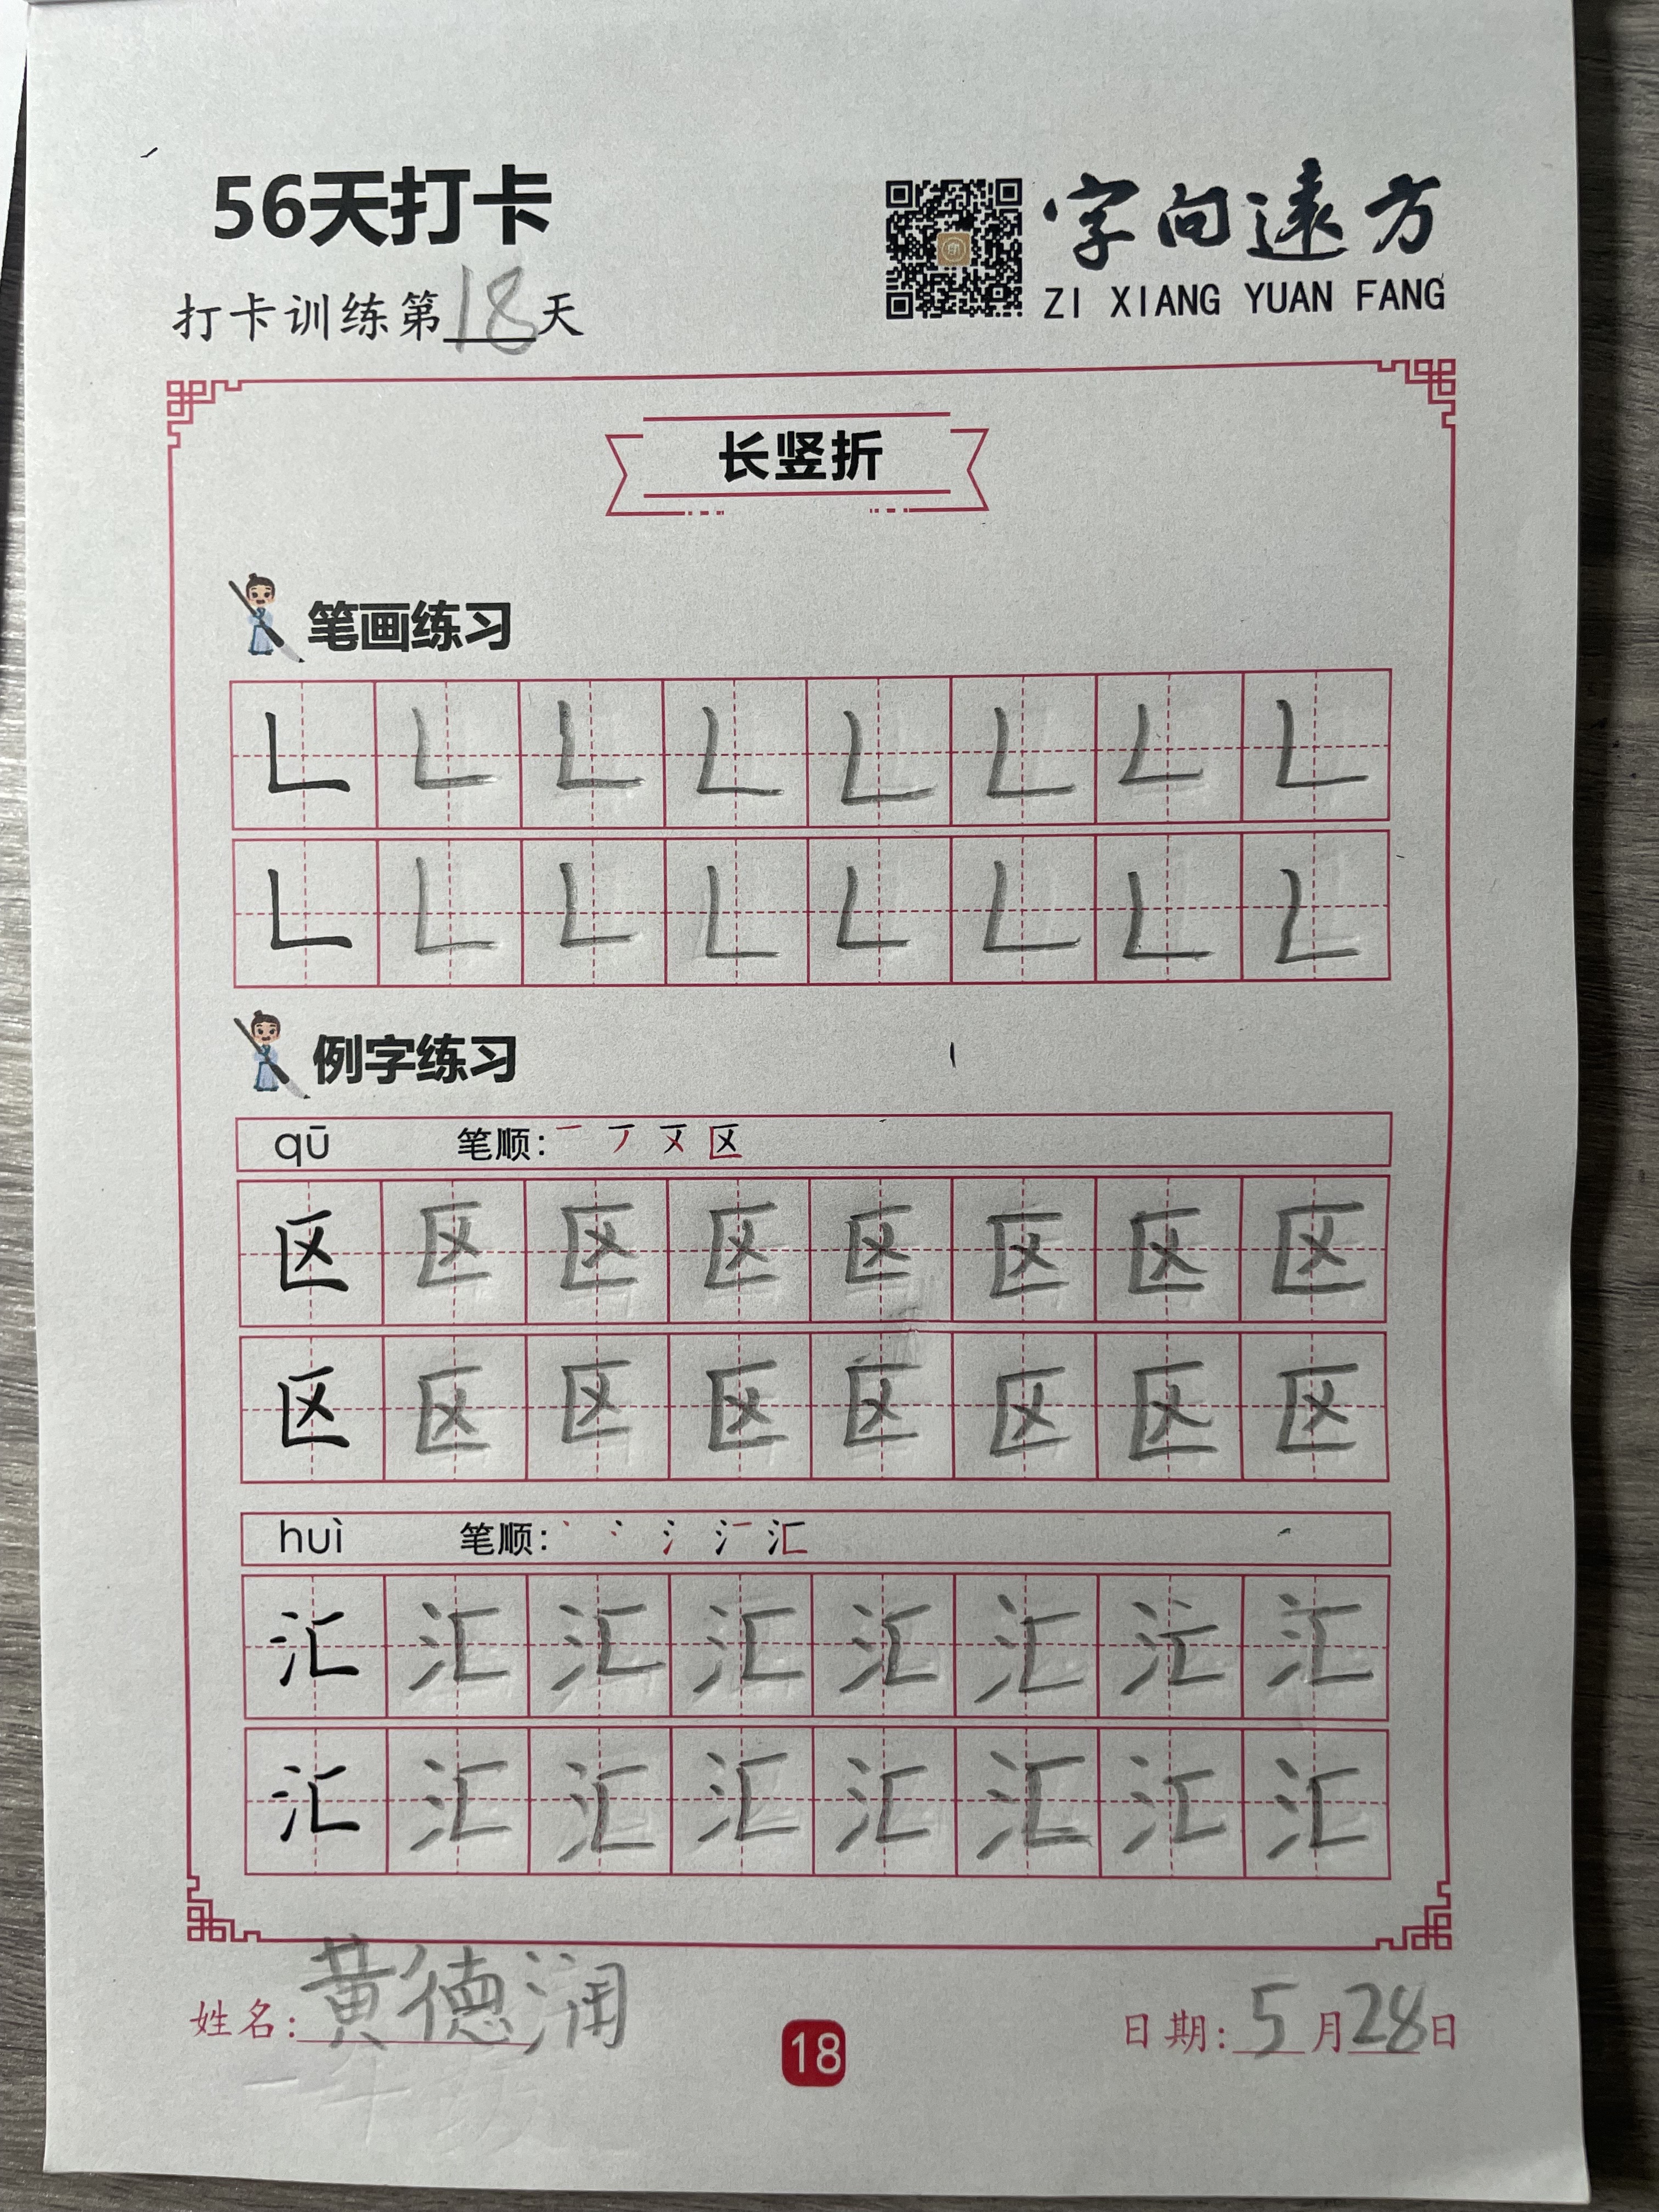 56天打卡
字向遠方
ZI XIANG YUAN FANG
打卡训练第18天
长竖折
笔画练习
𠃊 𠃊 𠃊 𠃊 𠃊 𠃊 𠃊 𠃊
𠃊 𠃊 𠃊 𠃊 𠃊 𠃊 𠃊 𠃊
例字练习
qū 笔顺: 一 丆 区
区 区 区 区 区 区 区 区
区 区 区 区 区 区 区 区
huì 笔顺: 丶 冫 氵 汇
汇 汇 汇 汇 汇 汇 汇 汇
汇 汇 汇 汇 汇 汇 汇 汇
姓名: 黄德润
18
日期: 5月28日